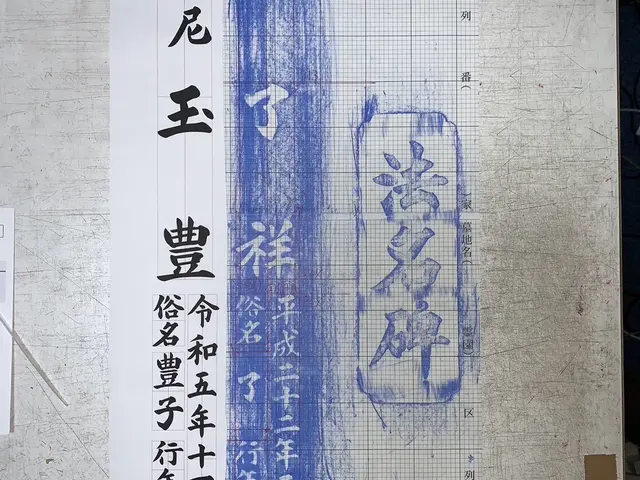 列
番(
家 墓地名(
霊園)
区
列
法名碑
平成二十二年
了祥
俗名 了 行年
令和五年十一
尼玉豊
俗名豊子 行年